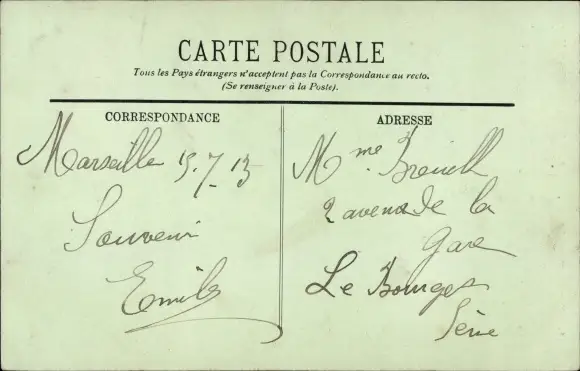 CARTE POSTALE
Tous les Pays étrangers n'acceptent pas la Correspondance au recto.
(Se renseigner à la Poste).
CORRESPONDANCE
Marseille 15.7.13
Souvenir
Emile
ADRESSE
Mme.
2 avenue de la
Gare
Le Bourget
Seine